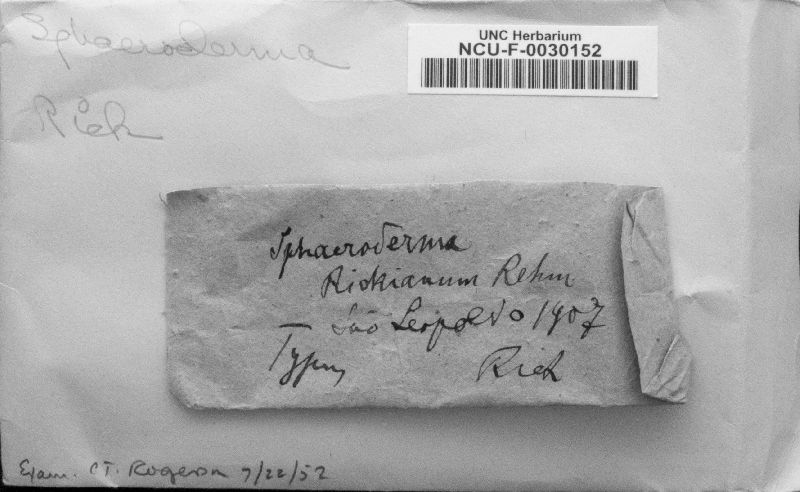 Sphaeroderma
Rick
UNC Herbarium
NCU-F-0030152
Sphaeroderma
Rickianum Rehm
São Leopoldo 1907
Typus
Rick
Exam. C T. Rogerson 7/22/52